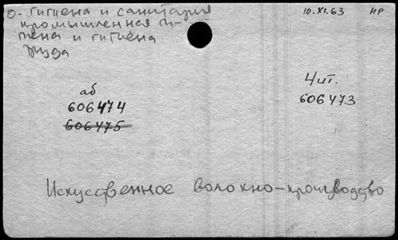 0. гигиена и санитария
промышленная ги-
гиена и гигиена
труда
10.XI.63 НР
аб
606474
606475
Чит.
606473
Искусственное волокно-производство